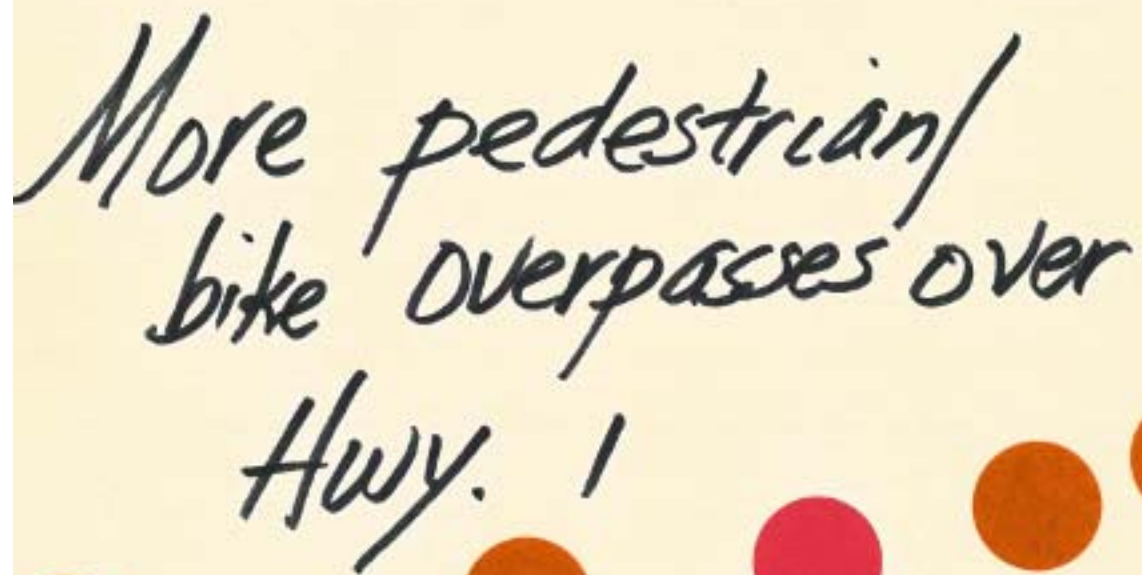 More pedestrian/
bike overpasses over
Hwy. 1